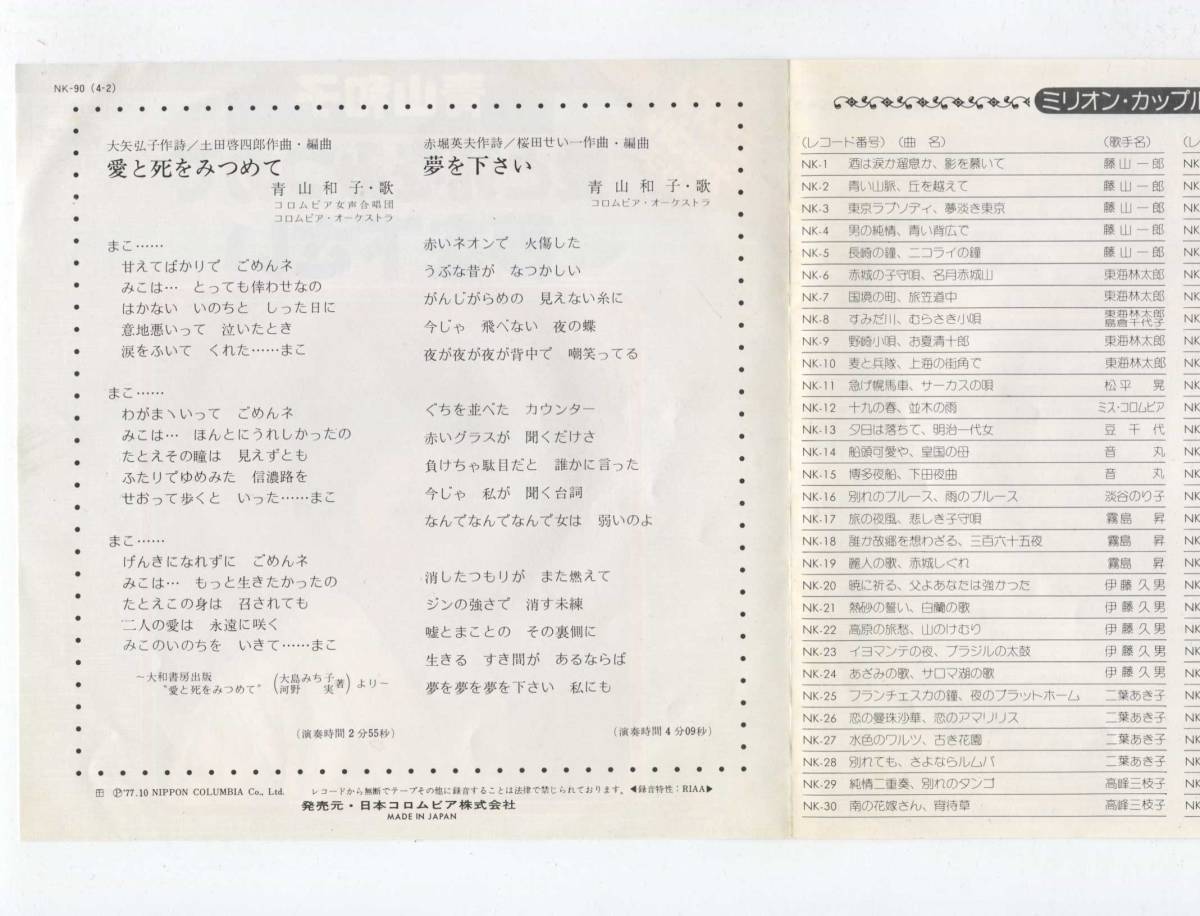 NK-90 (4-2)
大矢弘子作詩/土田啓四郎作曲・編曲
愛と死をみつめて
青山和子・歌
コロムビア女声合唱団
コロムビア・オーケストラ
まこ……
甘えてばかりで ごめんネ
みこは… とっても倖わせなの
はかない いのちと しった日に
意地悪いって 泣いたとき
涙をふいて くれた……まこ
まこ……
わがまゝいって ごめんネ
みこは… ほんとにうれしかったの
たとえその瞳は 見えずとも
ふたりでゆめみた 信濃路を
せおって歩くと いった……まこ
まこ……
げんきになれずに ごめんネ
みこは… もっと生きたかったの
たとえこの身は 召されても
二人の愛は 永遠に咲く
みこのいのちを いきて……まこ
~大和書房出版
"愛と死をみつめて" (大島みち子 河野 実 著) より~
(演奏時間2分55秒)
赤堀英夫作詩/桜田せい一作曲・編曲
夢を下さい
青山和子・歌
コロムビア・オーケストラ
赤いネオンで 火傷した
うぶな昔が なつかしい
がんじがらめの 見えない糸に
今じゃ 飛べない 夜の蝶
夜が夜が夜が背中で 嘲笑ってる
ぐちを並べた カウンター
赤いグラスが 聞くだけさ
負けちゃ駄目だと 誰かに言った
今じゃ 私が 聞く台詞
なんでなんでなんで女は 弱いのよ
消したつもりが また燃えて
ジンの強さで 消す未練
嘘とまことの その裏側に
生きる すき間が あるならば
夢を夢を夢を下さい 私にも
(演奏時間4分09秒)
田 Ⓟ'77.10 NIPPON COLUMBIA Co., Ltd. レコードから無断でテープその他に録音することは法律で禁じられております。◀録音特性:RIAA▶
発売元・日本コロムビア株式会社
MADE IN JAPAN
ミリオン・カップル
(レコード番号) (曲 名) (歌手名) (レ
NK-1 酒は涙か溜息か、影を慕いて 藤山一郎 NK
NK-2 青い山脈、丘を越えて 藤山一郎 NK
NK-3 東京ラプソディ、夢淡き東京 藤山一郎 NK
NK-4 男の純情、青い背広で 藤山一郎 NK
NK-5 長崎の鐘、ニコライの鐘 藤山一郎 NK
NK-6 赤城の子守唄、名月赤城山 東海林太郎 NK
NK-7 国境の町、旅笠道中 東海林太郎 NK
NK-8 すみだ川、むらさき小唄 東海林太郎 島倉千代子 NK
NK-9 野崎小唄、お夏清十郎 東海林太郎 NK
NK-10 麦と兵隊、上海の街角で 東海林太郎 NK
NK-11 急げ幌馬車、サーカスの唄 松平 晃 NK
NK-12 十九の春、並木の雨 ミス・コロムビア NK
NK-13 夕日は落ちて、明治一代女 豆千代 NK
NK-14 船頭可愛や、皇国の母 音 丸 NK
NK-15 博多夜船、下田夜曲 音 丸 NK
NK-16 別れのブルース、雨のブルース 淡谷のり子 NK
NK-17 旅の夜風、悲しき子守唄 霧島 昇 NK
NK-18 誰か故郷を想わざる、三百六十五夜 霧島 昇 NK
NK-19 麗人の歌、赤城しぐれ 霧島 昇 NK
NK-20 暁に祈る、父よあなたは強かった 伊藤久男 NK
NK-21 熱砂の誓い、白蘭の歌 伊藤久男 NK
NK-22 高原の旅愁、山のけむり 伊藤久男 NK
NK-23 イヨマンテの夜、ブラジルの太鼓 伊藤久男 NK
NK-24 あざみの歌、サロマ湖の歌 伊藤久男 NK
NK-25 フランチェスカの鐘、夜のプラットホーム 二葉あき子 NK
NK-26 恋の曼珠沙華、恋のアマリリス 二葉あき子 NK
NK-27 水色のワルツ、古き花園 二葉あき子 NK
NK-28 別れても、さよならルムバ 二葉あき子 NK
NK-29 純情二重奏、別れのタンゴ 高峰三枝子 NK
NK-30 南の花嫁さん、宵待草 高峰三枝子 NK